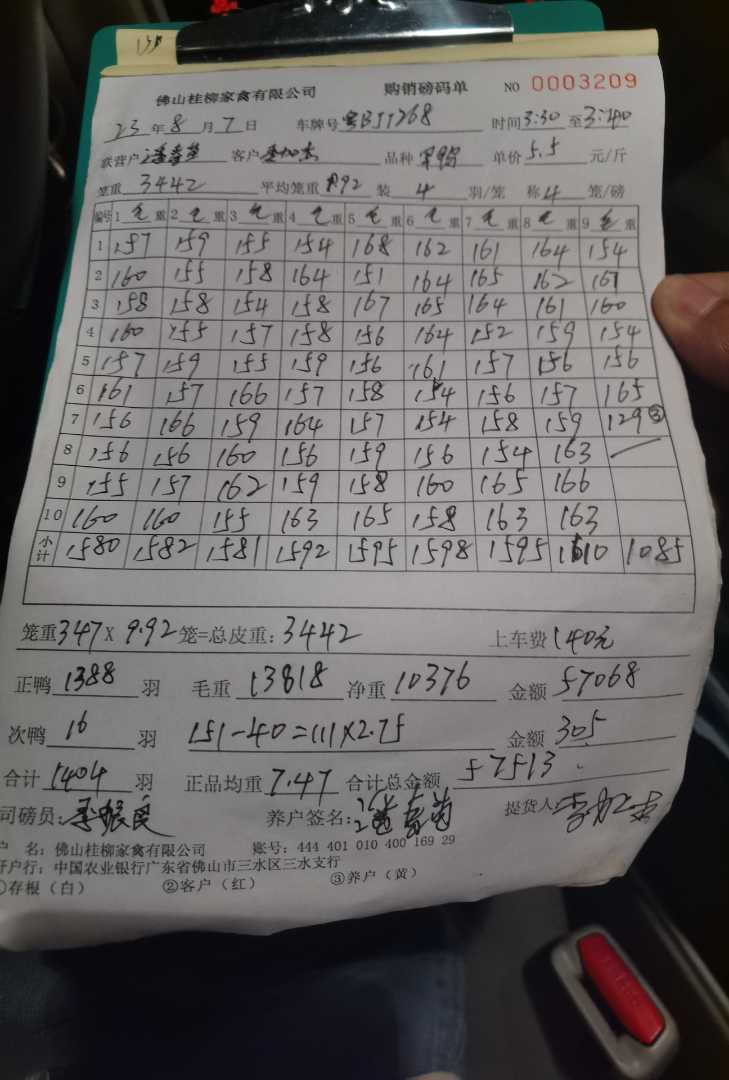 佛山桂柳家禽有限公司 购销磅码单 NO 0003209
23年8月7日 车牌号 粤BJ1268 时间3:30至3:40
联营户 客户 品种 单价5.5元/斤
笼重3442 平均笼重9.92 装4羽/笼 称4笼/磅
编号 1毛重 2毛重 3毛重 4毛重 5毛重 6毛重 7毛重 8毛重 9毛重
1 157 159 155 154 168 162 161 164 154
2 160 155 158 164 151 164 165 162 161
3 158 158 154 158 167 165 164 161 160
4 160 155 157 158 156 164 152 159 154
5 157 159 155 159 156 161 157 156 156
6 161 157 166 157 158 154 156 157 165
7 156 166 159 164 157 154 158 159 129③
8 156 156 160 156 159 156 154 163
9 155 157 162 159 158 160 165 166
10 160 160 155 163 165 158 163 163
小计 1580 1582 1581 1592 1595 1598 1595 1610 1085
笼重347X9.92笼=总皮重:3442 上车费140元
正鸭1388羽 毛重13818 净重10376 金额57068
次鸭16羽 151-40=111X2.75 金额305
合计1404羽 正品均重7.47 合计总金额57513
司磅员: 养户签名: 提货人
户 名:佛山桂柳家禽有限公司 账号:444 401 010 400 169 29
开户行:中国农业银行广东省佛山市三水区三水支行
①存根(白) ②客户(红) ③养户(黄)